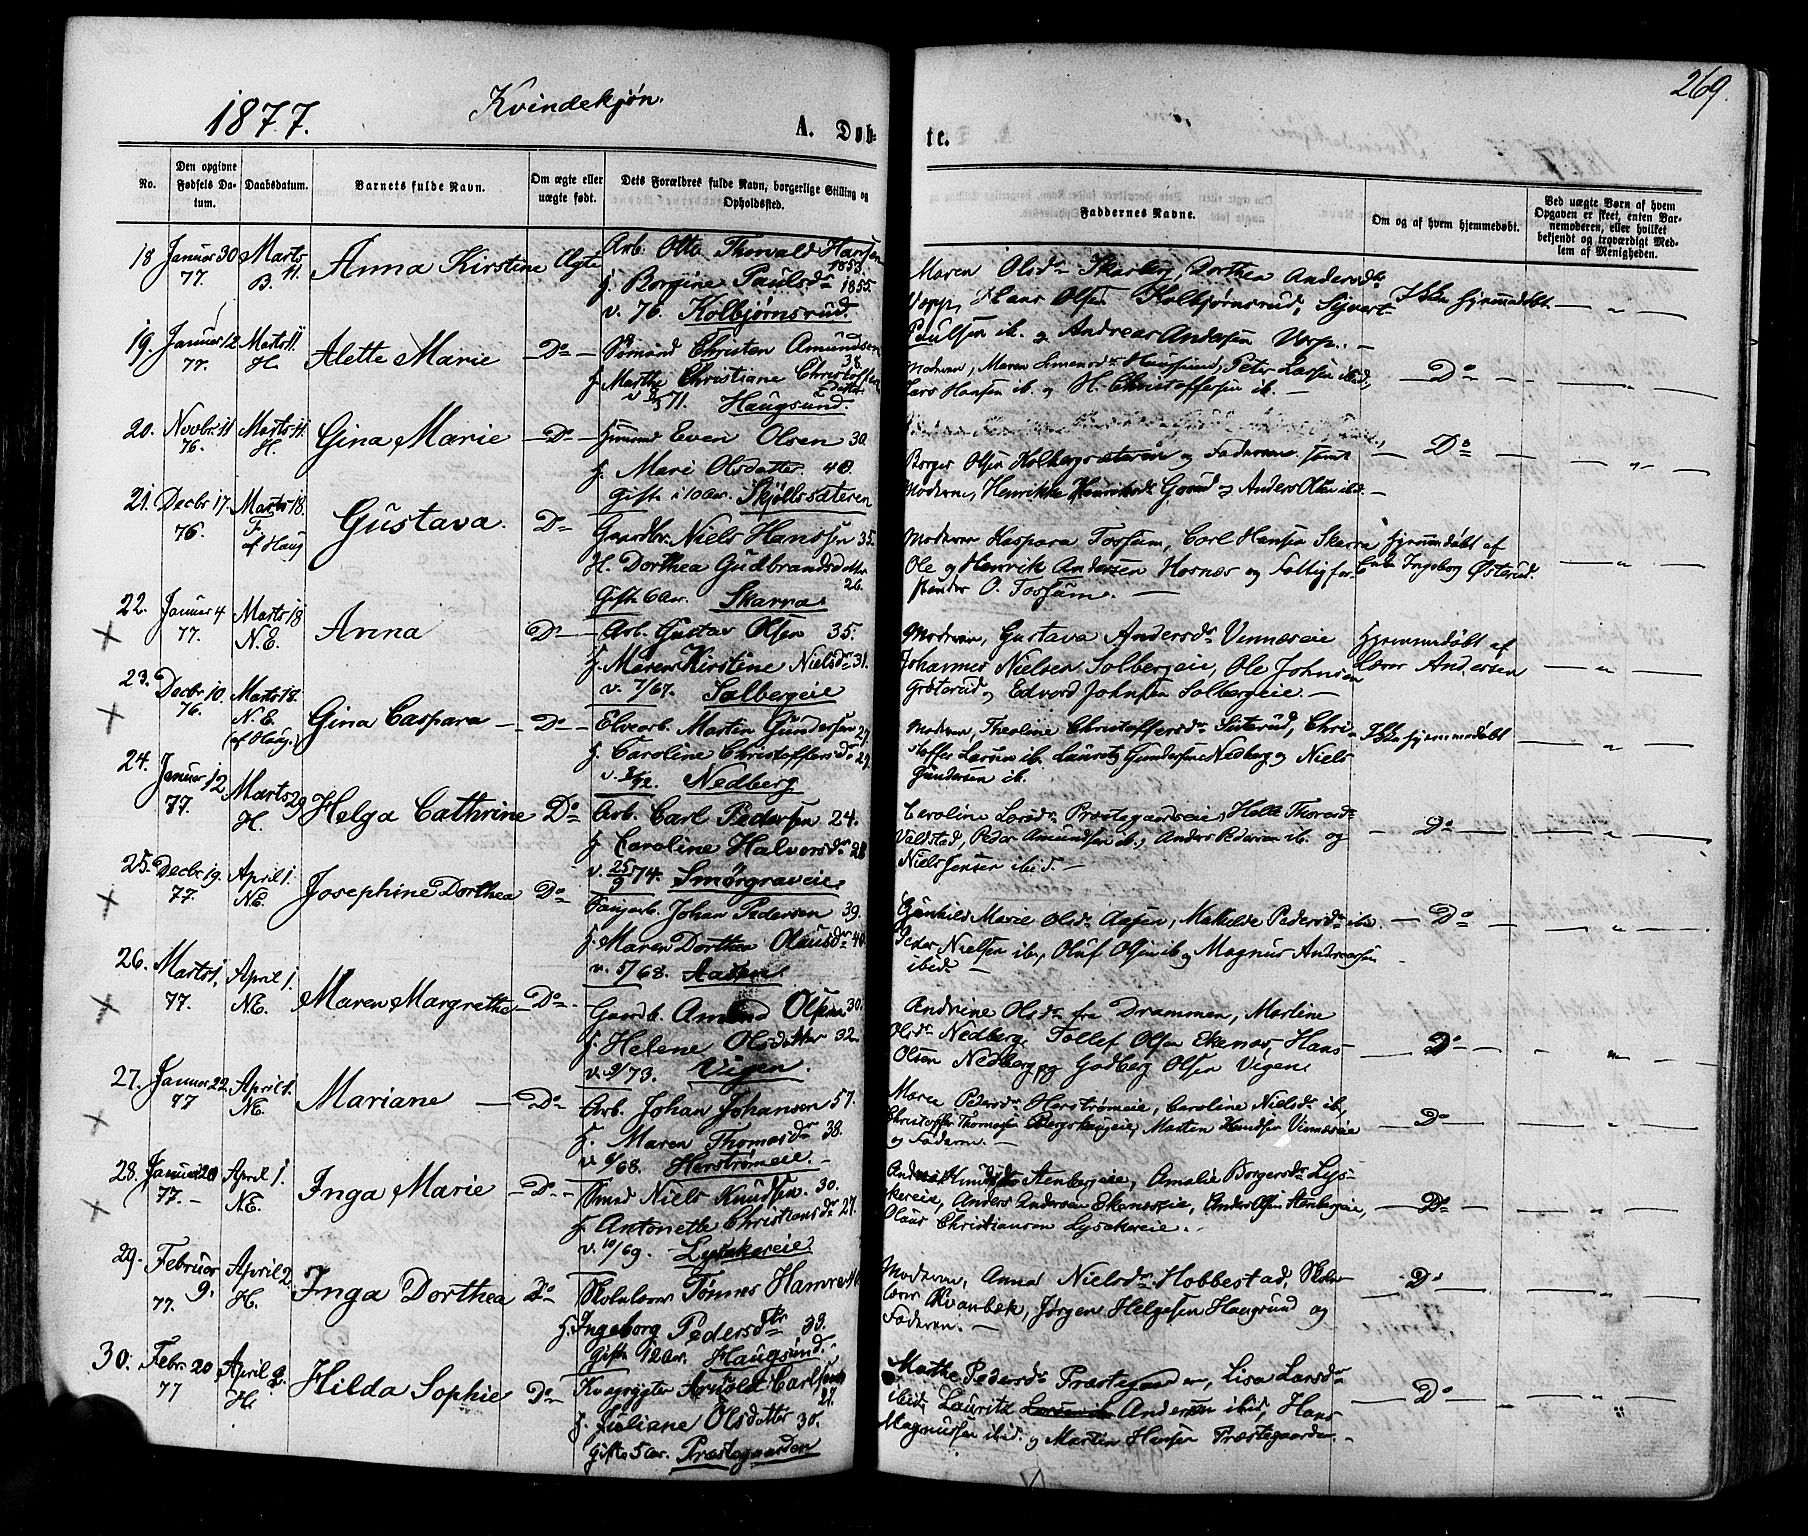 269.
1877.
Kvindekjøn.
A. Døb-
te.
No.
Den opgivne Fødsels Da-tum.
Daabsdatum.
Barnets fulde Navn.
Om ægte eller uægte født.
Dets Forældres fulde Navn, borgerlige Stilling og Opholdssted.
Faddernes Navne.
Om og af hvem hjemmedøbt.
Ved uægte Børn af hvem Opgaven er skeet, enten Bar-nemoderen, eller hvilket bekjendt og troværdigt Med-lem af Menigheden.
18 Januar 30 77. Marts 11. B. Anna Kirstine Ægte
Arb. Otto Thorvald Hansen 1853.
f. Borgine Paulsdr 1855.
v. 76. Kolbjørnsrud.
Maren Olsdr Skarberg, Dorthea Andersdr
Vorp, Hans Olsen Kolbjørnsrud, Syvert
Paulsen ib. og Andreas Andersen Vorp. –
Ikke hjemmedøbt.
19. Januar 12 77. Marts 11. H. Alette Marie Do
Sømand Christen Amundsen 38
f. Marthe Christiane Christoffers datter
v 71. Haugsund.
Moderen, Maren Simensdr Haugsund, Peter Larsen ibid,
Lars Hansen ib. og H. Christoffersen ib. –
Do
20. Novbr 11 76. Marts 11. H. Gina Marie Do
Even Olsen 30.
f. Mari Olsdatter 40.
gift i 10 Ar. Skjøllsæteren
Borger Olsen Holbergsæteren og Faderen samt
Moderen, Henrikke Henriksdr Gorud og Anders Olsen ibid. –
Do
21. Decbr 17. 76. Marts 18. F. af Haug Gustava. Do
Gaardbr. Niels Hanssen 35.
H. Dorthea Gudbrandsdatter 26.
Gift 6 Ar. Skarra.
Moderen Kaspara Fossum, Carl Hansen Skarra
Ole og Henrik Andersen Hornæs og Fattigfor-
stander O. Fossum. –
Hjemmedøbt af
Enke Ingeborg Østerud.
22. Januar 4 77. Marts 18 N.E. Anna Do
Arb. Gustav Olsen 35.
f. Maren Kirstine Nielsdr 31.
v. 7/67. Solbergeie
Moderen, Gustava Andersdr Vinnæseie
Johannes Nielsen Solbergeie, Ole Johnsen
Grøterud og Edvard Johnsen Solbergeie. –
Hjemmedøbt af
Lærer Andersen
23. Decbr 10. 76. Marts 18. N.E. (af Haug.) Gina Caspara – Do
Elvearb. Martin Gundersen 27.
f. Caroline Christoffersdr 29.
v. 2/72. Nedberg
Moderen, Theoline Christoffersdr Seterud, Chri-
stoffer Larsen ib. Lauretz Gundersen Nedberg og Niels
Gundersen ib.
Ikke hjemmedøbt
24. Januar 12 77. Marts 29 H. Helga Cathrine Do
Arb. Carl Pedersen 24.
f. Caroline Halvorsdr 28
v. 25/9 74. Smørgraveie
Caroline Larsdr Præstegaardseie, Helle Thoresdr
Valdstad, Peder Amundsen ib., Anders Pedersen ib. og
Niels Jensen ibid. –
Do
25. Decbr 19. 77. April 1. N.E. Josephine Dorthea Do
Saugarb. Johan Pedersen 39.
f. Maren Dorthea Olausdr 40
v. 5/68. Aasen.
Gunhild Marie Olsdr Aasen, Mathilde Pedersdr ib.
Peder Nielsen ib., Oluf Olsen ib og Magnus Andreassen
ibid. –
Do
26. Marts 1, 77. April 1. N.E. Maren Margrethe Do
Gaardb. Amund Olsen 30.
f. Helene Olsdatter 32
v. 9/73. Vigen.
Andrine Olsdr fra Drammen, Martine
Olsdr Nedberg, Tollef Olsen Ekenæs, Hans
Olsen Nedberg og Godberg Olsen Vigen.
Do
27. Januar 22. 77 April 1. N.E. Mariane – Do
Arb. Johan Johansen 57.
f. Maren Thomasdr 38.
v. 6/68. Herstrømeie. –
Maren Pedersdr Herstrømeie, Caroline Nielsdr ib,
Christoffer Thomassen Bergshaugeie, Martin Knudsen Vinnæseie
og Faderen. –
Do
28. Januar 20 77. – April 1. N.E. Inga Marie Do
Smed Niels Knudsen. 30.
f. Antonette Christiansdr 27.
v. 10/69. Lysakereie
Stenbergeie, Amalie Borgersdr Lys-
akereie, Anders Andersen Ekenæseie, Anders Olsen Stenbergeie,
Olaus Christiansen Lysakereie. –
Do
29. Februar 9. 77. April 2. H. Inga Dorthea Do
Skolelærer Tønnes Hamre
f. Ingeborg Pedersdtr 33.
Gift 12 Ar. Haugsund.
Moderen, Anna Nielsdr Hobbestad, Skole-
lærer Kvanbæk, Jørgen Helgesen Haugsund og
Faderen. –
Do
30. Febr. 20 77 April 2. H. Hilda Sophie Do
Kvægrygter Arnold Carlsen 27.
f. Juliane Olsdatter 30.
Gift 5 Ar. Præstegaarden
Mathe Pedersdr Præstegaarden, Lisa Larsdr
ibid, Lauritz Andersen ibid, Hans
Magnussen ibid. og Martin Hansen Præstegaarden. –
Do